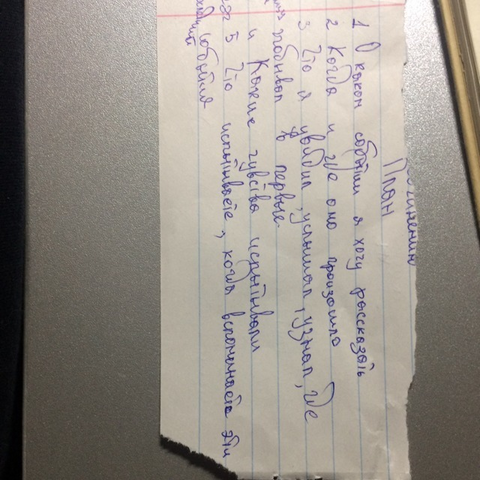 План
1 О каком событии я хочу рассказать
2 Когда и где оно произошло
3 Что я увидил, услышал, узнал, где
побывал в первые
Какие чувства испытывали
5 Что испытываете, когда вспоминаете эти
события